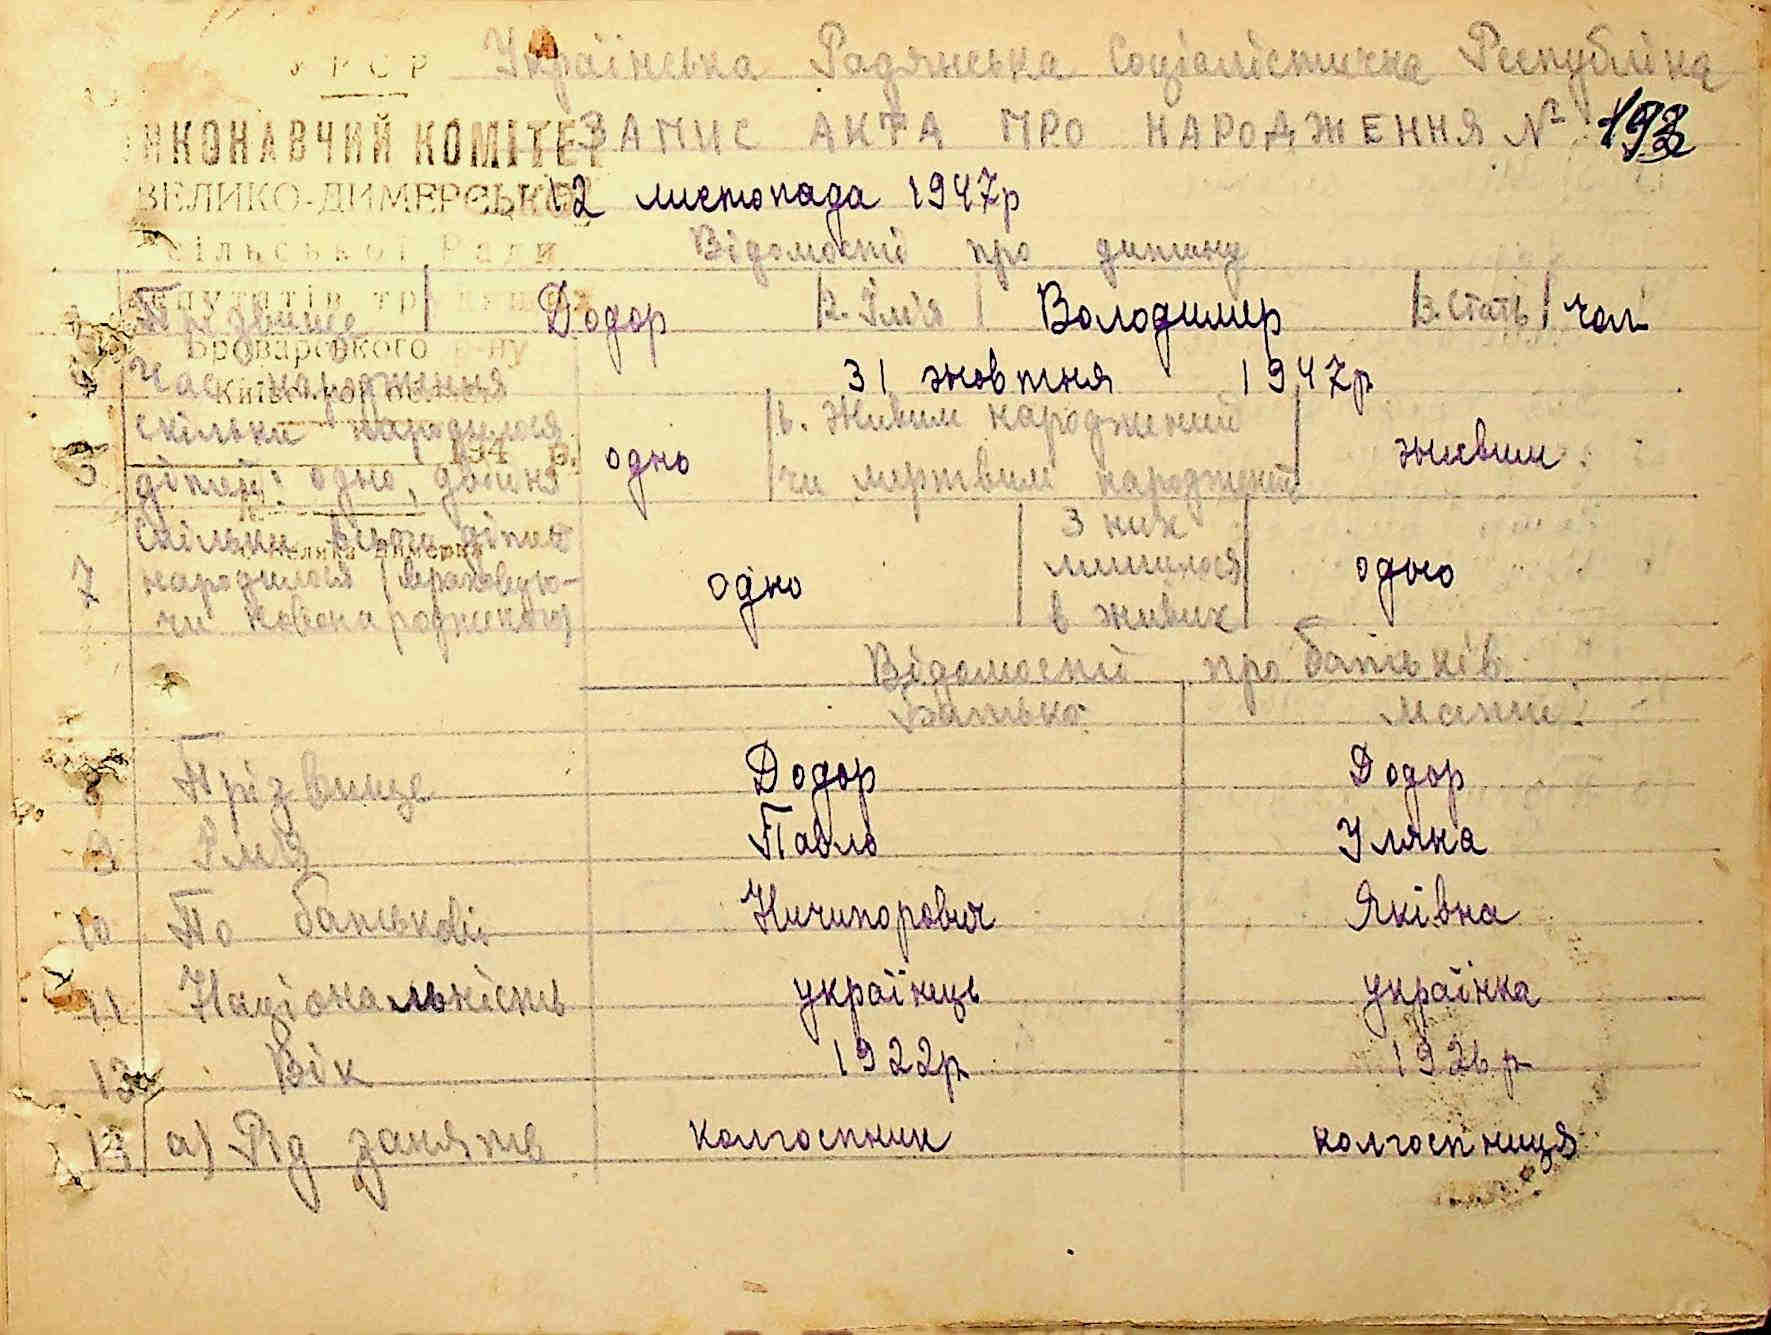 УРСР Українська Радянська Соціалістична Республіка
ВИКОНАВЧИЙ КОМІТЕТ
ЗАПИС АКТА ПРО НАРОДЖЕННЯ №
ВЕЛИКО-ДИМЕРСЬКОЇ
12 листопада 1947р
Сільської Ради
Відомості про дитину
депутатів трудящих
1 Прізвище Додор 2. Ім'я Володимер 3. Стать чол
Броварського р-ну
4 Час народження 31 жовтня 1947р
Київської області
5 скільки народилося дітей: одно, двойня одно 6. Живим народжений чи мертвим народжений живим
194 р.
7 Скільки всього дітей народилося враховуючи новонародженого одно З них лишилося в живих одно
с. Велика Димерка
Відомості про батьків
Батько Мати
8 Прізвище Додор Додор
9 Імя Павло Уляна
10 По батькові Ничипорович Яківна
11 Національність українець українка
12 Вік 1922р 1926р
13 а) Рід занятть колгоспник колгоспниця